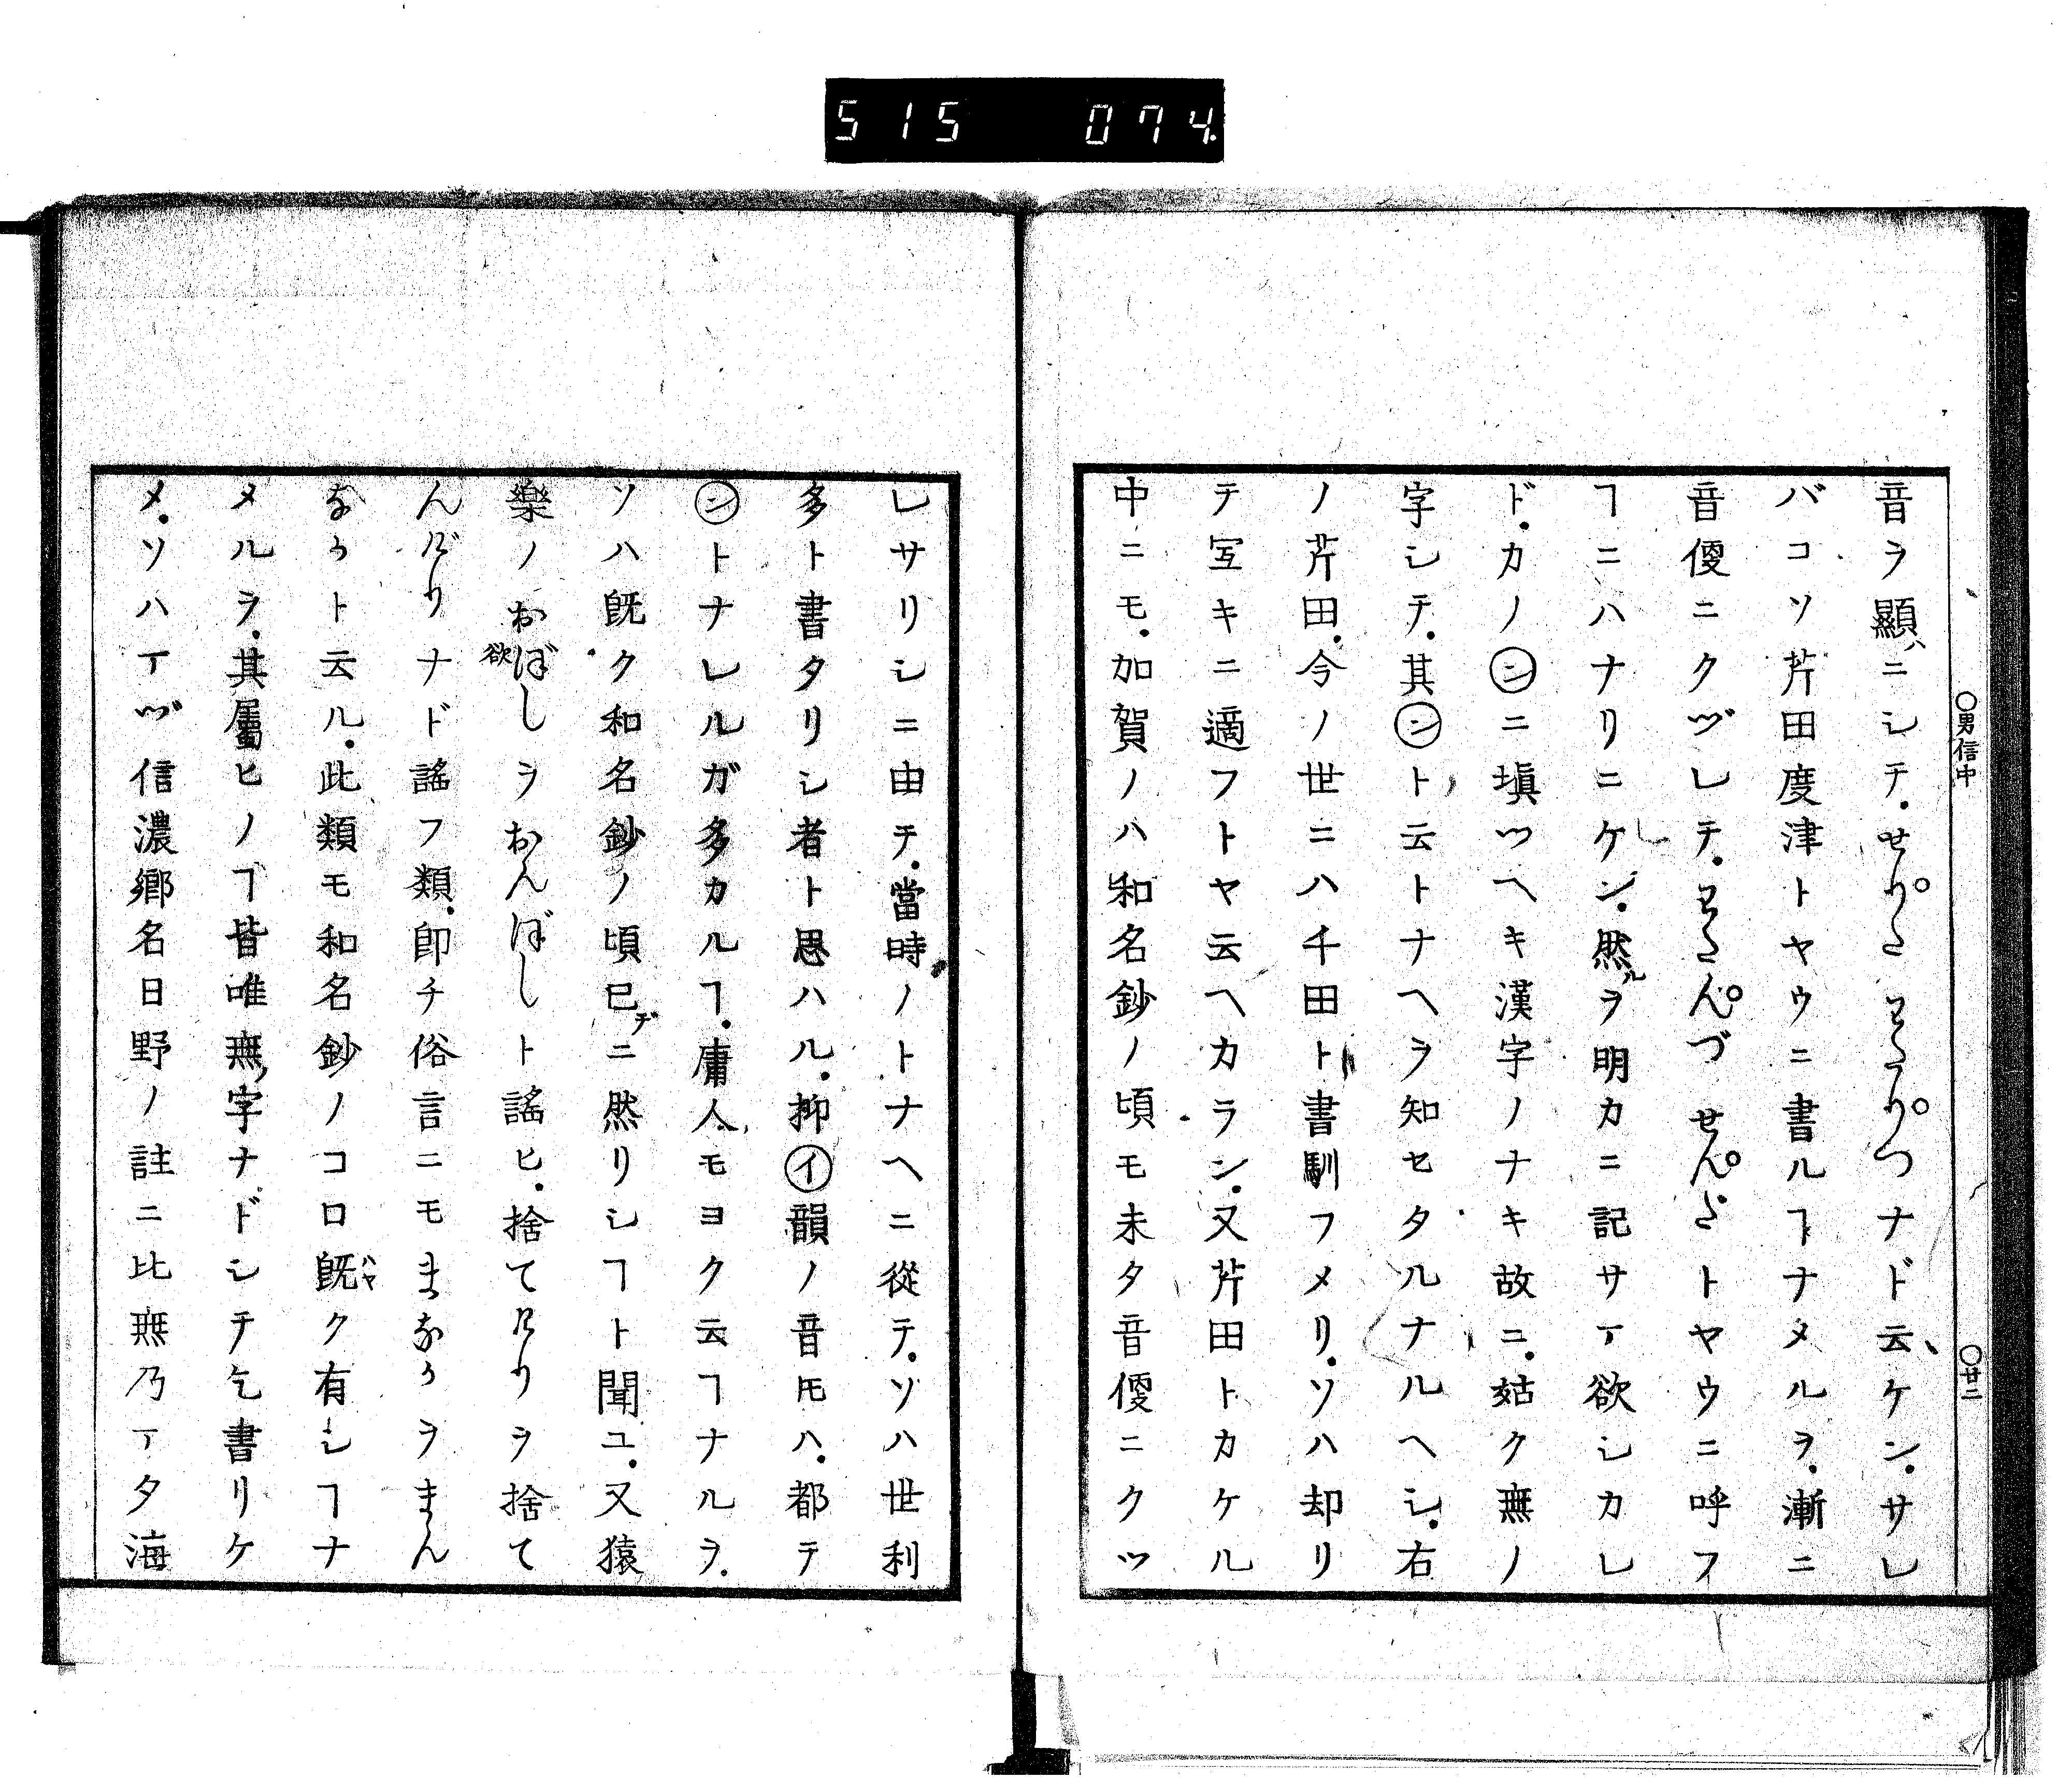 515 074
○男信中
○廿二
音ヲ顯ハニシテ．せりた わたりつナド云ケン．サレ
バコソ芹田度津トヤウニ書ルヿナメルヲ．漸ニ
音優ニクヅレテ．わたんづ せんだトヤウニ呼フ
ヿニハナリニケン．然ルヲ明カニ記サマ欲シカレ
ド．カノ㋛ニ塡ツヘキ漢字ノナキ故ニ．姑ク無ノ
字シテ．其ント云トナヘヲ知セタルナルヘシ．右
ノ芹田．今ノ世ニハ千田ト書馴フメリ．ソハ却リ
テ冩キニ適フトヤ云ヘカラン．又芹田トカケル
中ニモ．加賀ノハ和名鈔ノ頃モ未タ音優ニクツ
レサリシニ由テ．當時ノトナヘニ從テ．ソハ世利
多ト書タリシ者ト思ハル．抑イ韻ノ音モハ．都テ
ントナレルガ多カルヿ．庸人モヨク云ヿナルヲ．
ソハ既ク和名鈔ノ頃巳デニ然リシヿト聞ユ．又猿
樂ノおぼし欲ヲおんぼしト謠ヒ．捨てけりヲ捨て
んげりナド謠フ類．卽チ俗言ニモまなかヲまん
なかト云ル．此類モ和名鈔ノコロ既ハヤク有シヿナ
メルヲ．其屬ヒノヿ皆唯無ノ字ナドシテ乞書リケ
メ．ソハマヅ信濃鄕名日野ノ註ニ比無乃マタ海